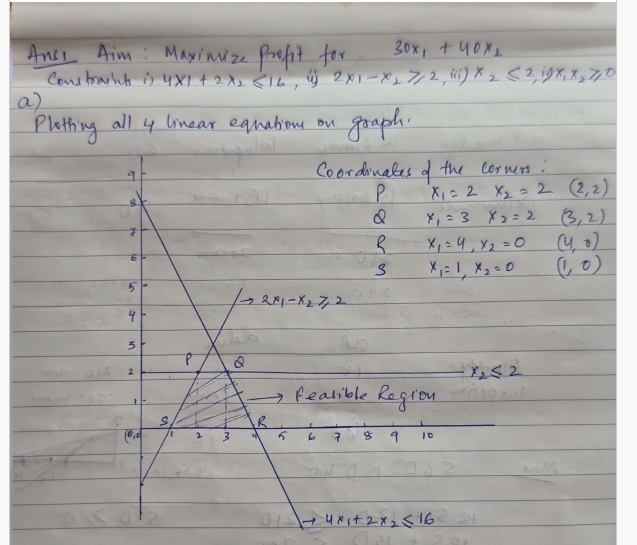 Ans1 Aim : Maximize Profit for 30x₁ + 40x₂
Constraints i) 4x1 + 2x₂ ≤ 16, ii) 2x1 - x₂ ≥ 2, iii) x₂ ≤ 2, iv) x₁x₂ ≥ 0
a)
Plotting all 4 linear equations on graph.
Coordinates of the corners :
P x₁ = 2 x₂ = 2 (2,2)
Q x₁ = 3 x₂ = 2 (3,2)
R x₁ = 4, x₂ = 0 (4,0)
S x₁ = 1, x₂ = 0 (1,0)
9
8
7
6
5
→ 2x1 - x₂ ≥ 2
4
3
P Q
2 x₂ ≤ 2
1 → Feasible Region
S R
(0,0) 1 2 3 4 5 6 7 8 9 10
→ 4x1 + 2x₂ ≤ 16